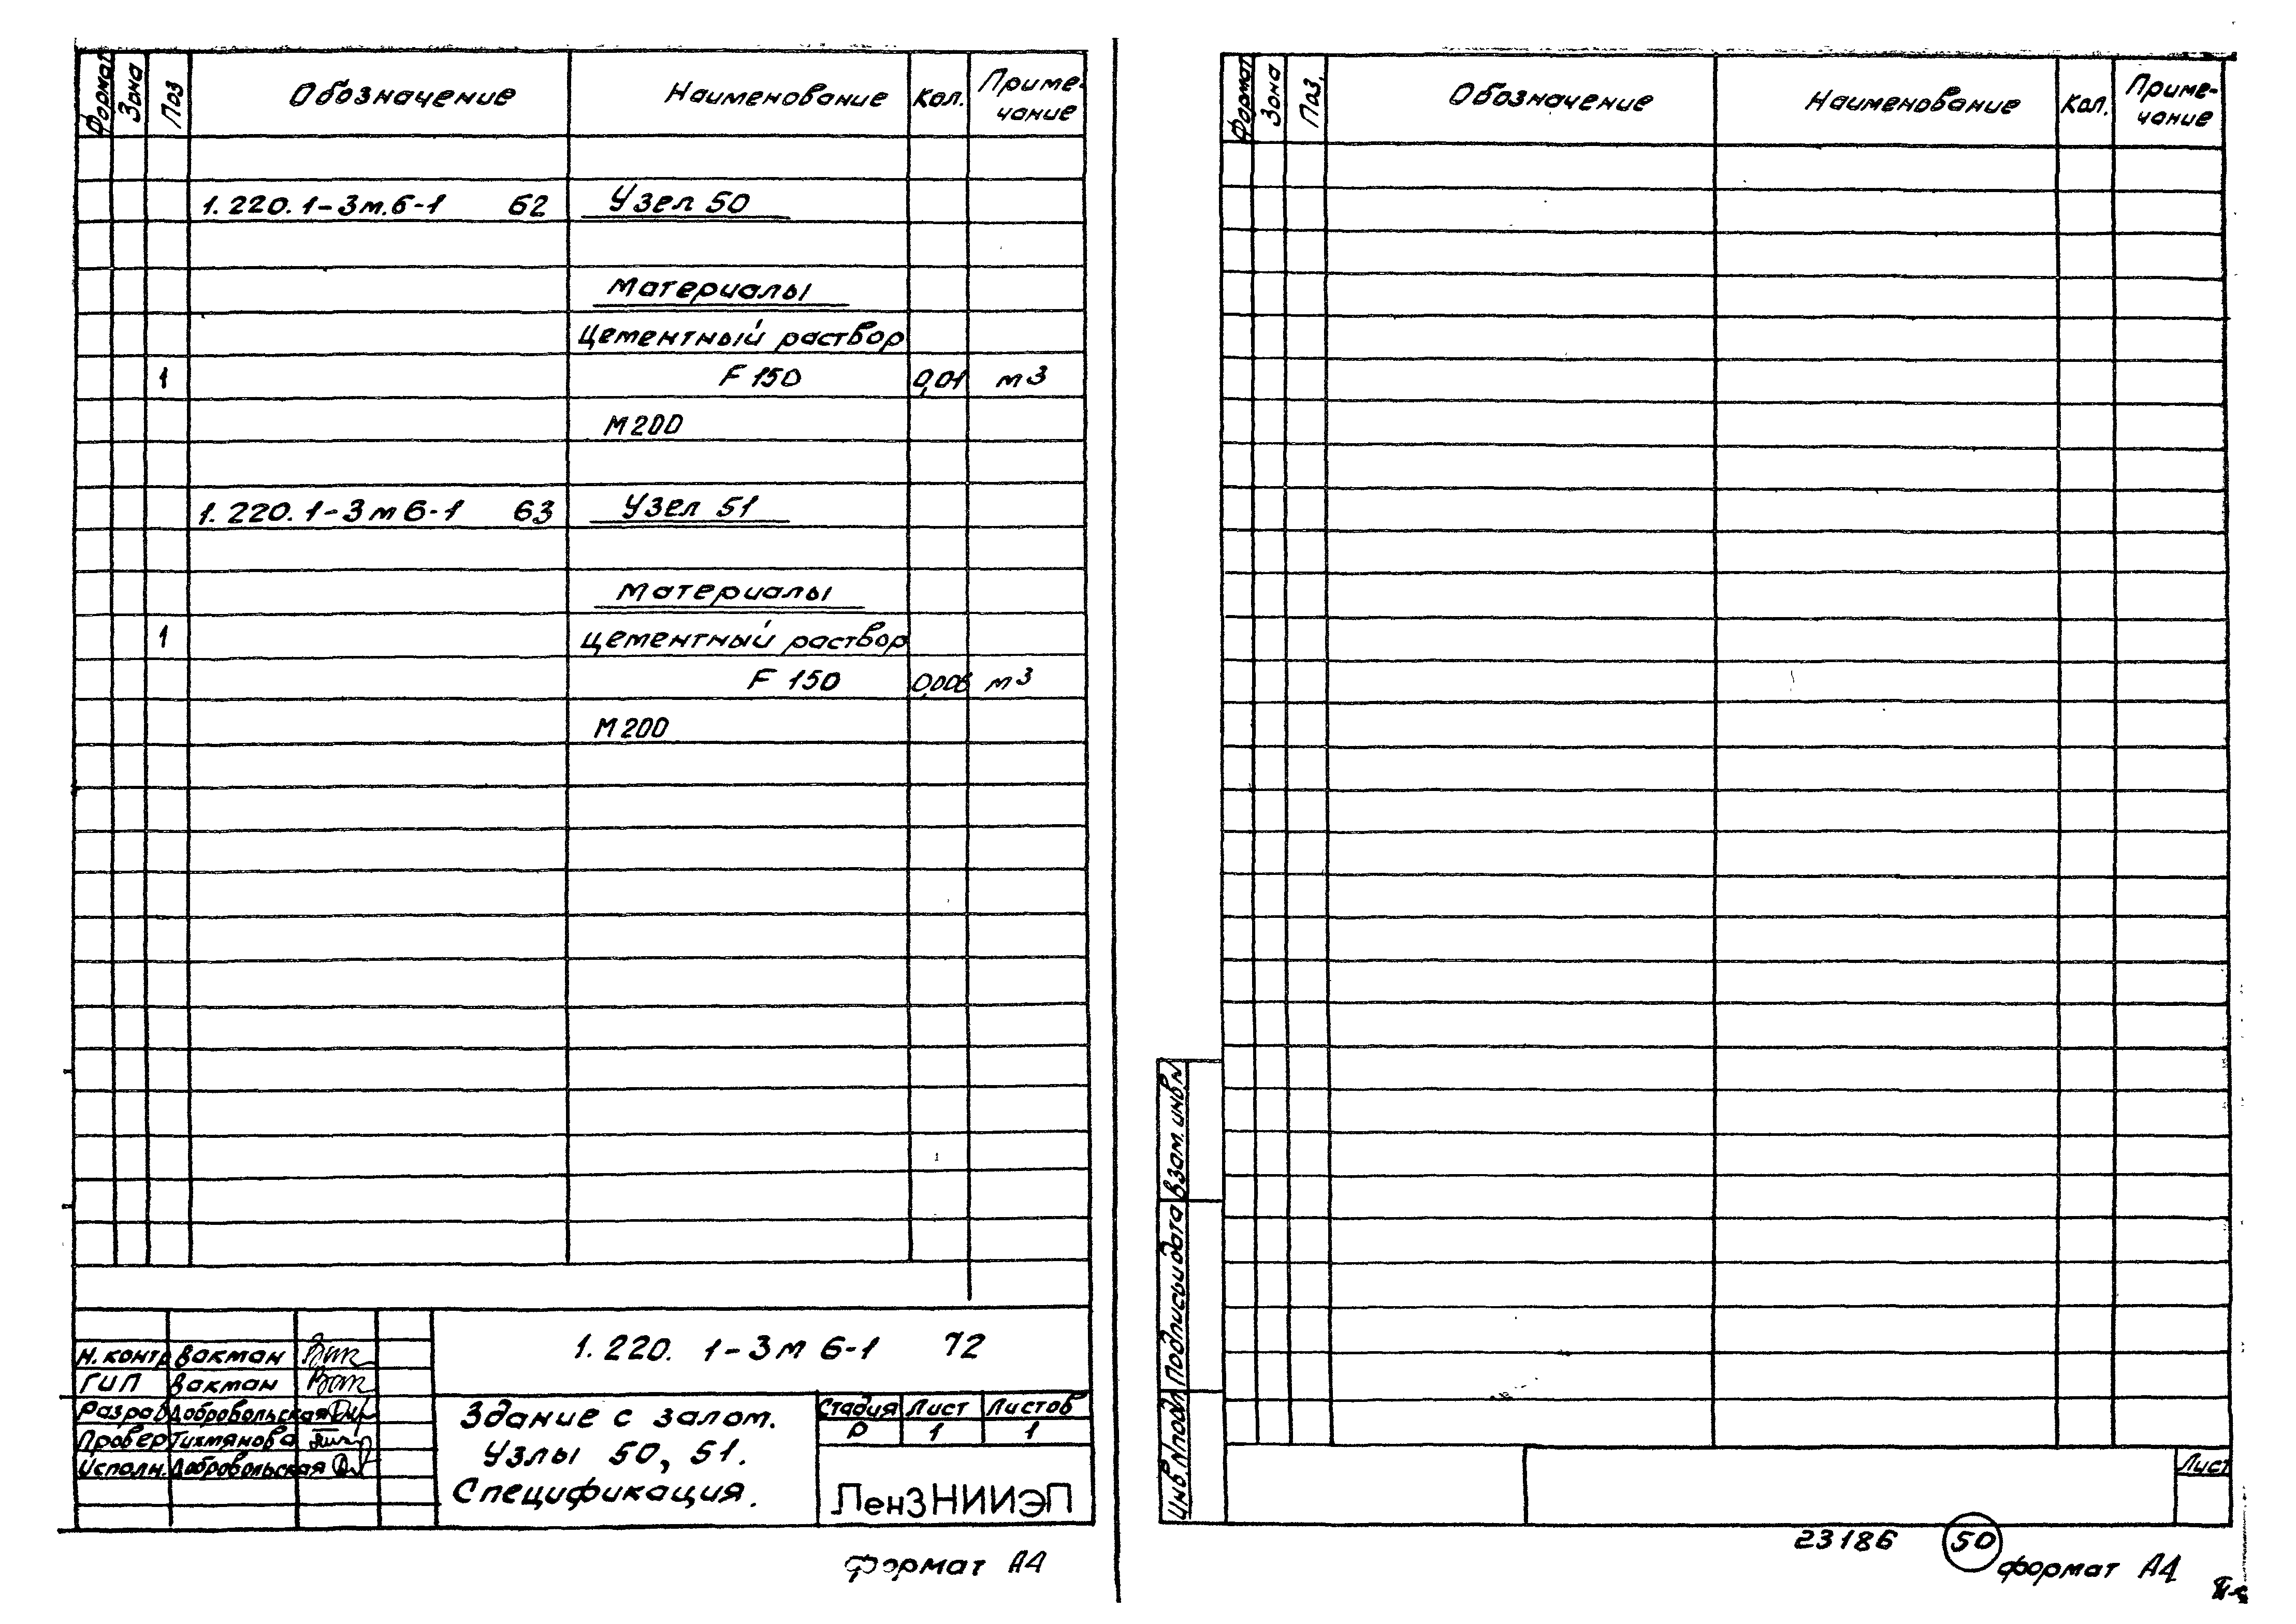 Формат Зона Поз Обозначение Наименование Кол. Приме-
чание
1.220.1-3м.6-1 62 Узел 50
Материалы
Цементный раствор
1 F 150 0,01 м3
М200
1.220.1-3м6-1 63 Узел 51
Материалы
1 цементный раствор
F 150 0,006 м3
М200
1.220. 1-3м 6-1 72
Н.контр Вакман
ГИП Вакман
Разраб Добровольская
Провер Тихмянова
Исполн. Добровольская
Здание с залом.
Узлы 50, 51.
Спецификация.
Стадия Лист Листов
Р 1 1
ЛенЗНИИЭП
формат А4
Формат Зона Поз. Обозначение Наименование Кол. Приме-
чание
Взам.инв.N
Подпись и дата
Инв.Nподл
Лист
23186 50
формат А4